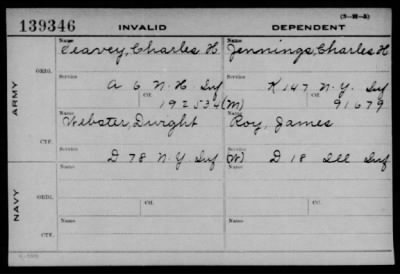 (3-M-2)
139346 INVALID DEPENDENT
Name Name
Peavey, Charles H. Jennings, Charles H
ORIG.
Service Service
A 6 N. H Inf K 147 N. Y. Inf
Ctf. Ctf.
192534 (M) 91679
ARMY
Name Name
Webster, Dwight Roy, James
CTF.
Service Service
D 78 N. Y Inf (W) D 18 Ill Inf
NAVY
Name Name
ORIG.
Ctf. Ctf.
Name Name
CTF.